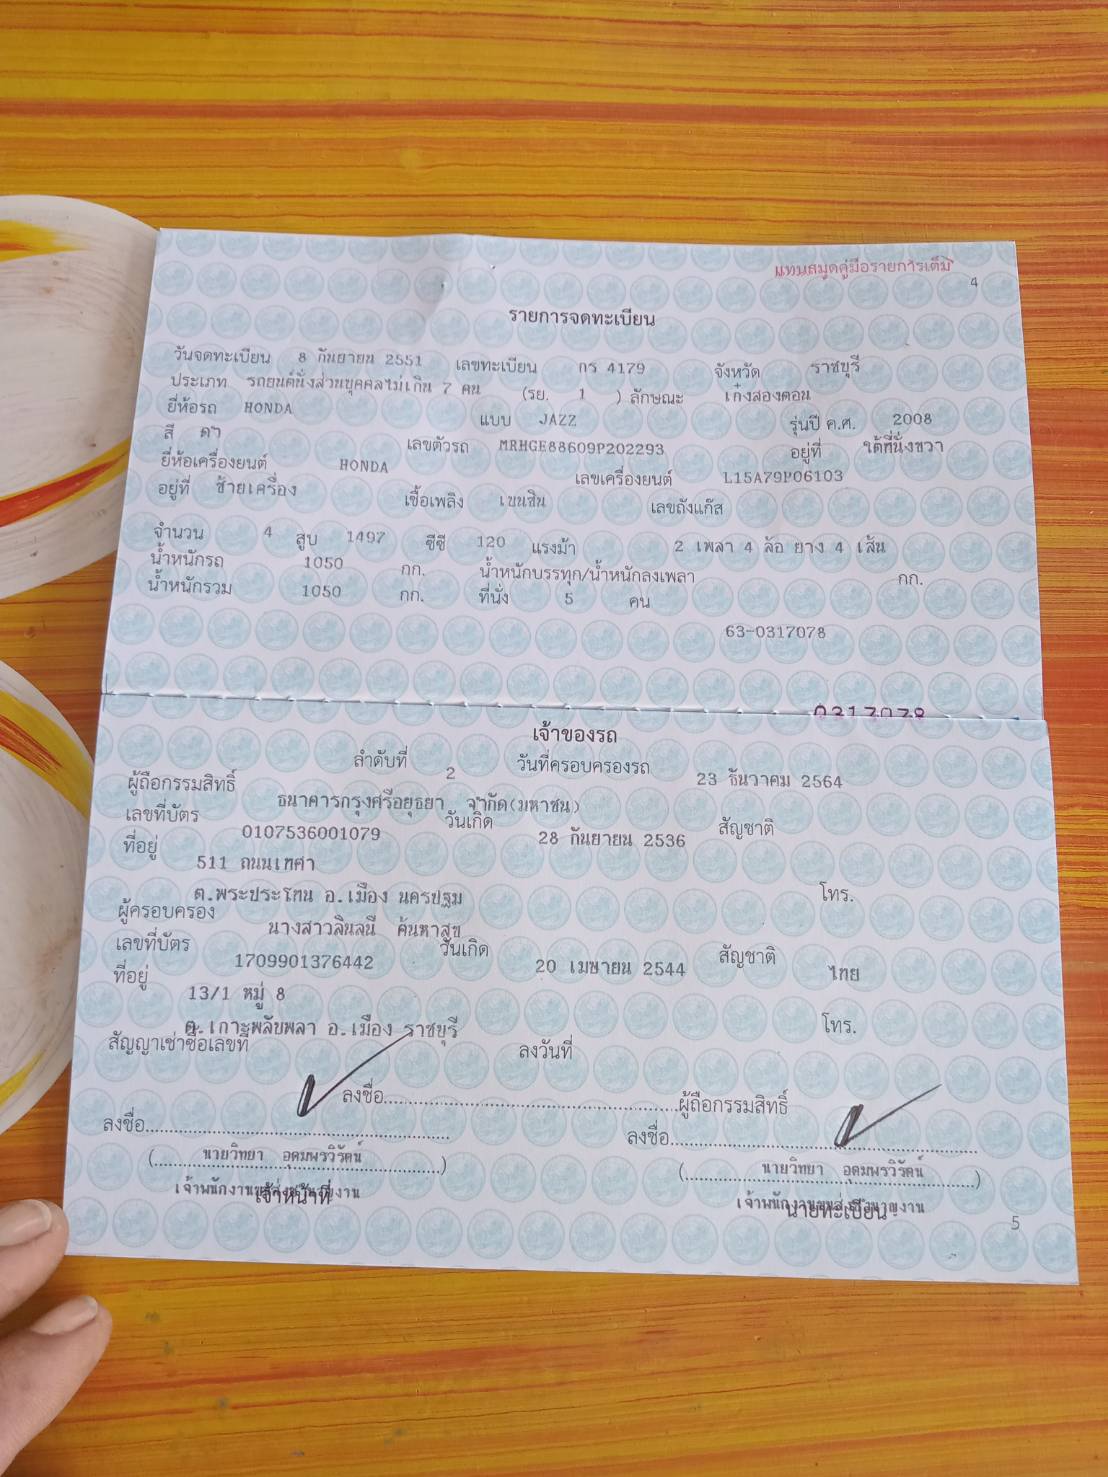 แทนสมุดคู่มือรายการเต็ม
4
รายการจดทะเบียน
วันจดทะเบียน 8 กันยายน 2551 เลขทะเบียน กร 4179 จังหวัด ราชบุรี
ประเภท รถยนต์นั่งส่วนบุคคลไม่เกิน 7 คน (รย. 1 ) ลักษณะ เก๋งสองตอน
ยี่ห้อรถ HONDA แบบ JAZZ รุ่นปี ค.ศ. 2008
สี ดำ เลขตัวรถ MRHGE88609P202293 อยู่ที่ ใต้ที่นั่งขวา
ยี่ห้อเครื่องยนต์ HONDA เลขเครื่องยนต์ L15A79P06103
อยู่ที่ ซ้ายเครื่อง เชื้อเพลิง เบนซิน เลขถังแก๊ส
จำนวน 4 สูบ 1497 ซีซี 120 แรงม้า 2 เพลา 4 ล้อ ยาง 4 เส้น
น้ำหนักรถ 1050 กก. น้ำหนักบรรทุก/น้ำหนักลงเพลา กก.
น้ำหนักรวม 1050 กก. ที่นั่ง 5 คน
63-0317078
0317078
เจ้าของรถ
ลำดับที่ 2 วันที่ครอบครองรถ 23 ธันวาคม 2564
ผู้ถือกรรมสิทธิ์ ธนาคารกรุงศรีอยุธยา จำกัด(มหาชน)
เลขที่บัตร 0107536001079 วันเกิด 28 กันยายน 2536 สัญชาติ
ที่อยู่ 511 ถนนเทศา
ต.พระประโทน อ.เมือง นครปฐม โทร.
ผู้ครอบครอง นางสาวลินลนี ค้นหาสุข
เลขที่บัตร 1709901376442 วันเกิด 20 เมษายน 2544 สัญชาติ ไทย
ที่อยู่ 13/1 หมู่ 8
ต.เกาะพลับพลา อ.เมือง ราชบุรี โทร.
สัญญาเช่าซื้อเลขที่ ลงวันที่
ลงชื่อ ผู้ถือกรรมสิทธิ์
ลงชื่อ ลงชื่อ
( นายวิทยา อุดมพรวิรัตน์ ) ( นายวิทยา อุดมพรวิรัตน์ )
เจ้าพนักงานขนส่งชำนาญงาน เจ้าพนักงานขนส่งชำนาญงาน
เจ้าหน้าที่ นายทะเบียน
5